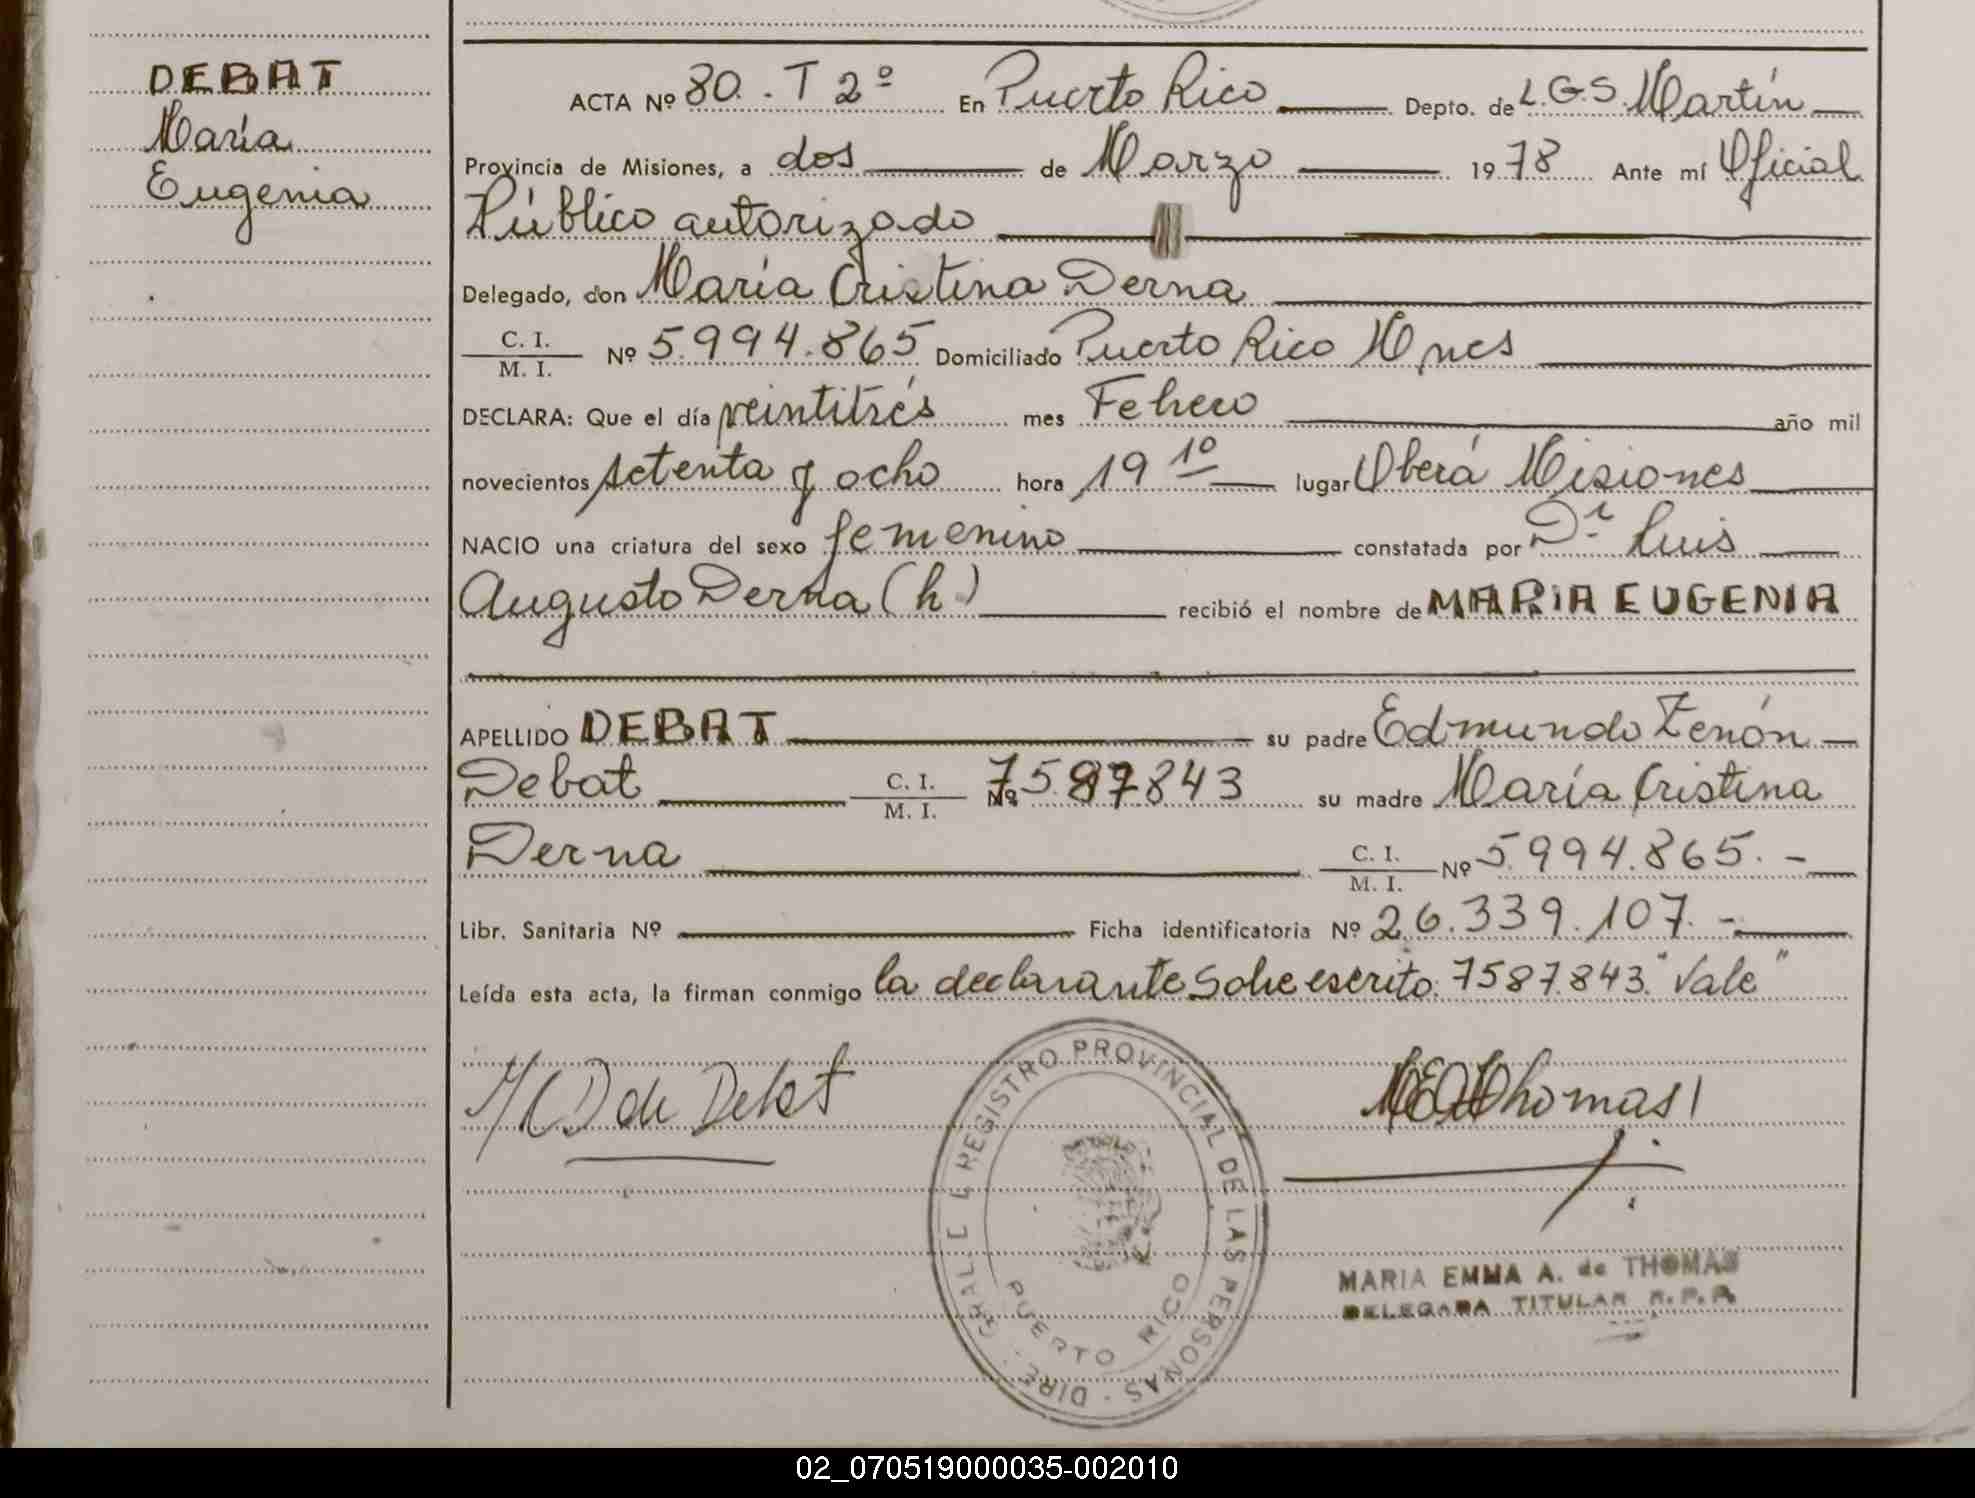 DEBAT
María
Eugenia
ACTA Nº 80. - T 2º En Puerto Rico Depto. de L.G.S. Martín
Provincia de Misiones, a dos de Marzo 1978 Ante mí Oficial
Público autorizado
Delegado, don María Cristina Derna
C. I. / M. I. Nº 5.994.865 Domiciliado Puerto Rico Mnes
DECLARA: Que el día veintitrés mes Febrero año mil
novecientos setenta y ocho hora 19 10 lugar Oberá Misiones
NACIO una criatura del sexo femenino constatada por Dr. Luis
Augusto Derna (h) recibió el nombre de MARIA EUGENIA
APELLIDO DEBAT su padre Edmundo Zenón
Debat C. I. / M. I. Nº 7587843 su madre María Cristina
Derna C. I. / M. I. Nº 5.994.865. -
Libr. Sanitaria Nº Ficha identificatoria Nº 26.339.107. -
Leída esta acta, la firman conmigo la declarante Sobre escrito: 7587.843. "Vale"
M C D de Debat
Thomas
REGISTRO PROVINCIAL DE LAS PERSONAS - DIRE. GRAL.
PUERTO RICO
MARIA EMMA A. de THOMAS
DELEGADA TITULAR R. P. P.
02_070519000035-002010